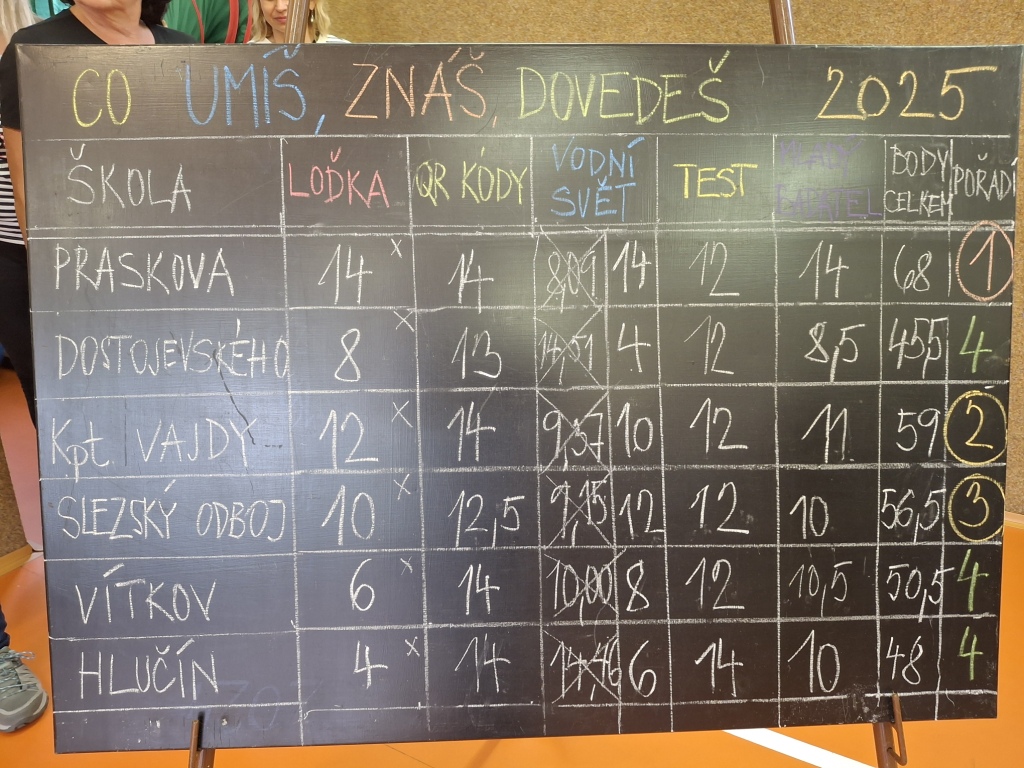 CO UMÍŠ, ZNÁŠ, DOVEDEŠ 2025
ŠKOLA LOĎKA QR KÓDY VODNÍ SVĚT TEST MLADÝ BODY CELKEM POŘADÍ
PRASKOVA 14 x 14 8,09 14 12 14 68 1
DOSTOJEVSKÉHO 8 x 13 14,51 4 12 8,5 45,5 4
Kpt. VAJDY 12 x 14 9,37 10 12 11 59 2
SLEZSKÝ ODBOJ 10 x 12,5 9,15 12 12 10 56,5 3
VÍTKOV 6 x 14 10,00 8 12 10,5 50,5 4
HLUČÍN 4 x 14 14,46 6 14 10 48 4